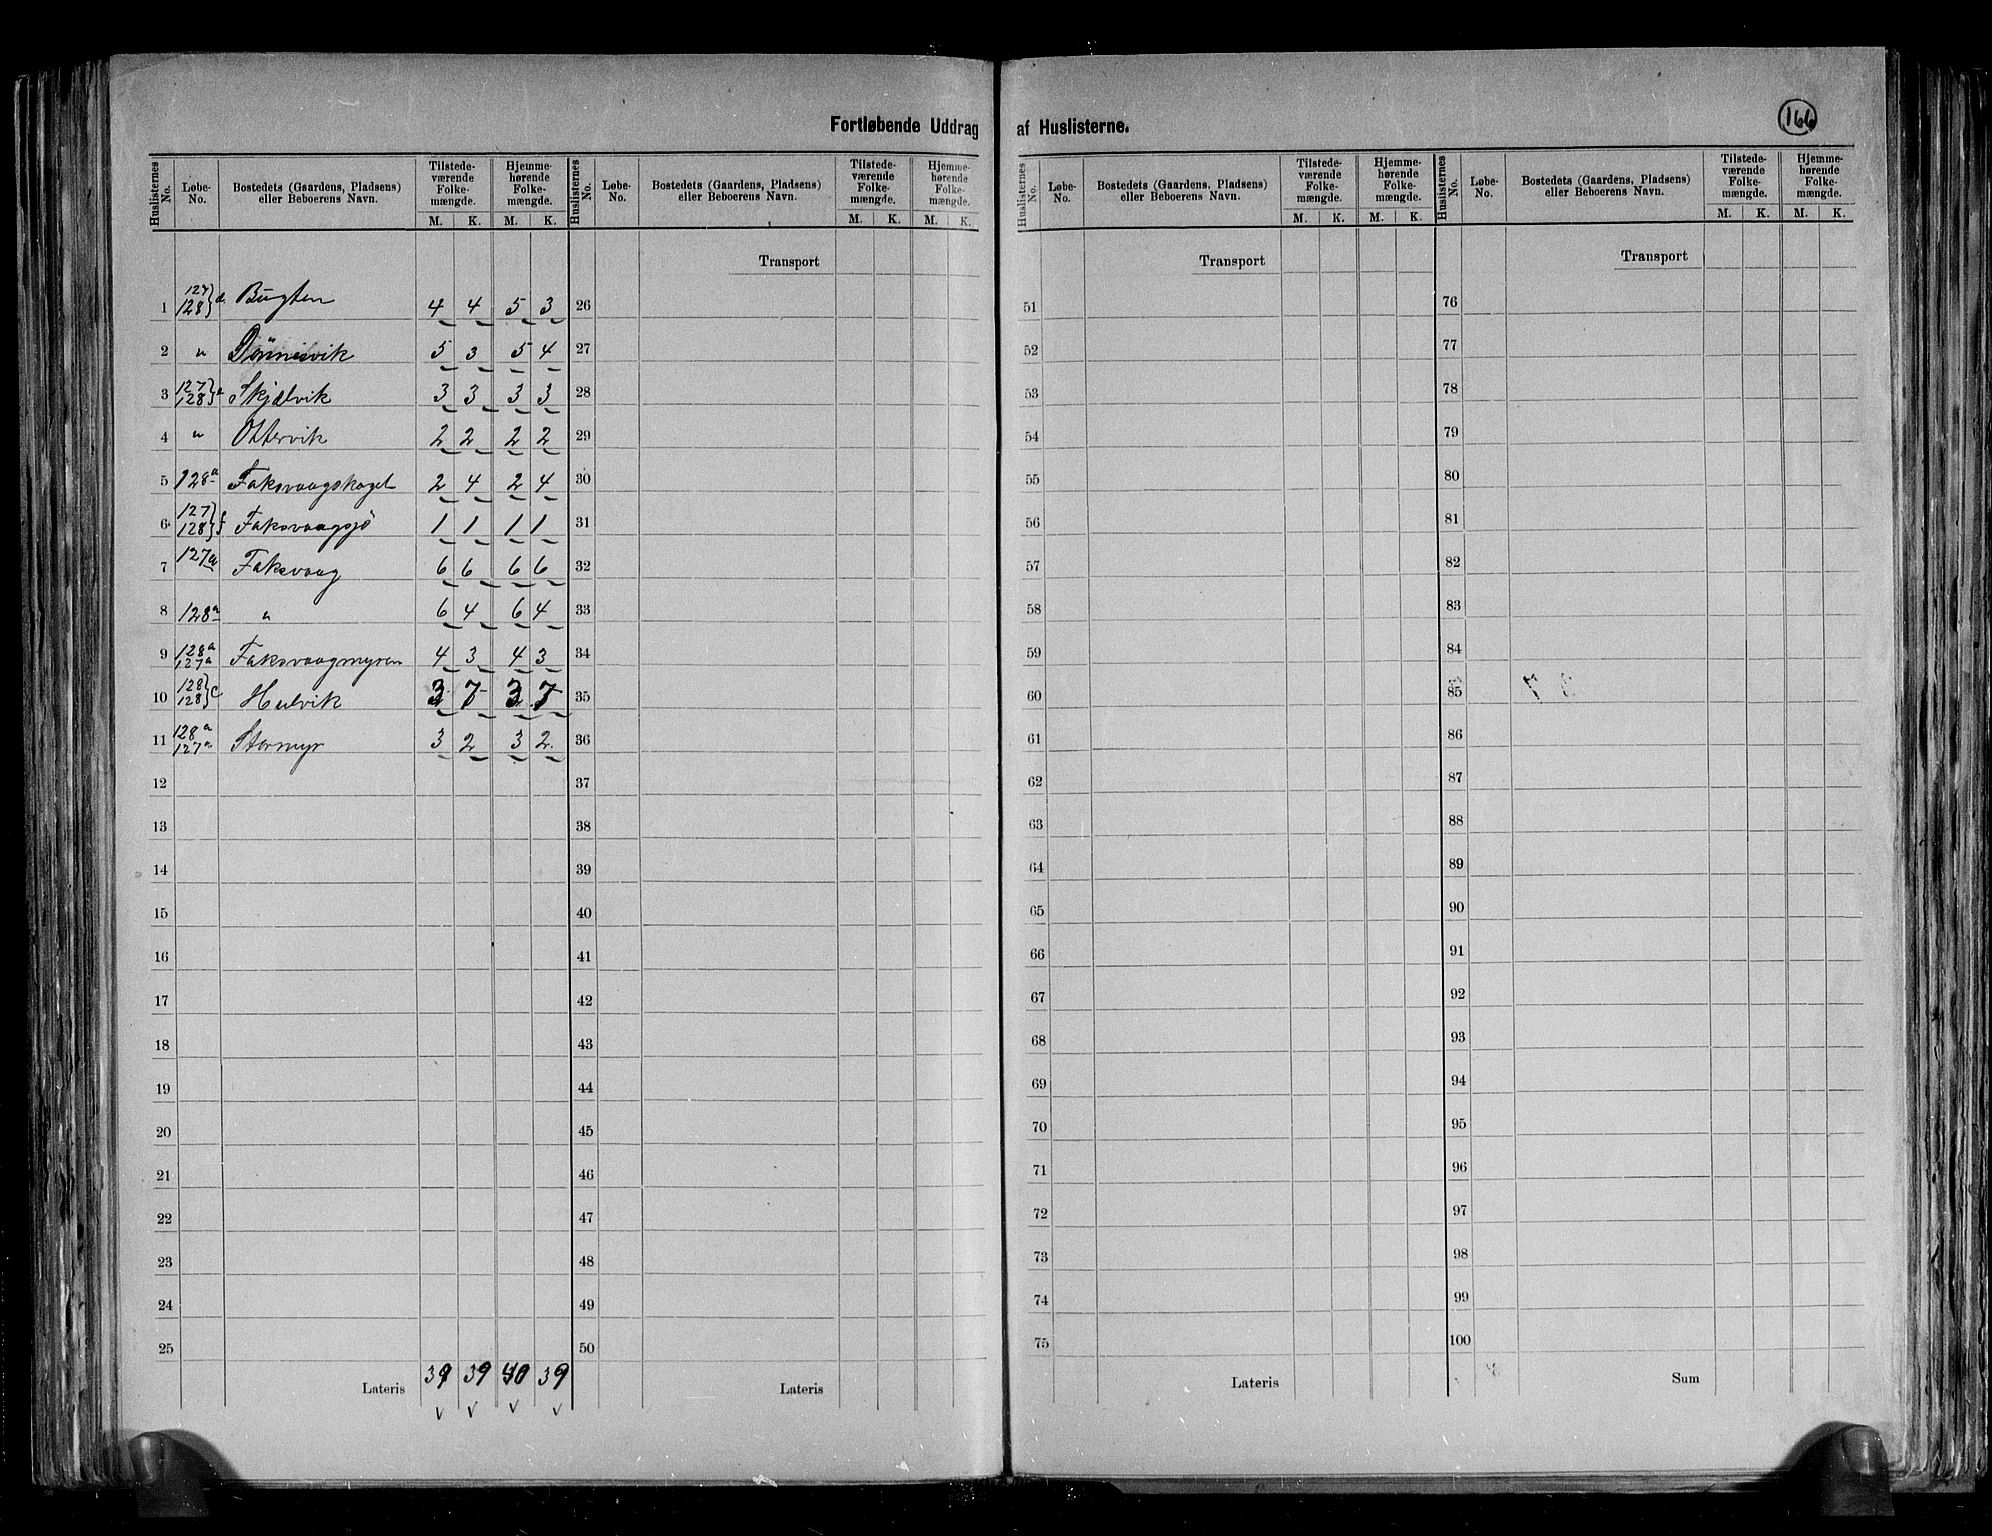 Fortløbende Uddrag af Huslisterne.
166
Huslisternes No. Løbe-No. Bostedets (Gaardens, Pladsens) eller Beboerens Navn. Tilstede-værende Folke-mængde. M. K. Hjemme-hørende Folke-mængde. M. K.
1 127 128 } d. Bugten 4 4 5 3
2 " Dönnesvik 5 3 5 4
3 127 128 } e Skjælvik 3 3 3 3
4 " Ottervik 2 2 2 2
5 128a Faksvaagskagel 2 4 2 4
6 127 128 } f Faksvaagsjö 1 1 1 1
7 127a Faksvaag 6 6 6 6
8 128a " 6 4 6 4
9 128a 127a Faksvaagmyren 4 3 4 3
10 128 128 } c Hulvik 3 7 3 7
11 128a 127a Stormyr 3 2 3 2.
12
13
14
15
16
17
18
19
20
21
22
23
24
25
Lateris 39 39 40 39
Huslisternes No. Løbe-No. Bostedets (Gaardens, Pladsens) eller Beboerens Navn. Tilstede-værende Folke-mængde. M. K. Hjemme-hørende Folke-mængde. M. K.
Transport
26
27
28
29
30
31
32
33
34
35
36
37
38
39
40
41
42
43
44
45
46
47
48
49
50
Lateris
Huslisternes No. Løbe-No. Bostedets (Gaardens, Pladsens) eller Beboerens Navn. Tilstede-værende Folke-mængde. M. K. Hjemme-hørende Folke-mængde. M. K.
Transport
51
52
53
54
55
56
57
58
59
60
61
62
63
64
65
66
67
68
69
70
71
72
73
74
75
Lateris
Huslisternes No. Løbe-No. Bostedets (Gaardens, Pladsens) eller Beboerens Navn. Tilstede-værende Folke-mængde. M. K. Hjemme-hørende Folke-mængde. M. K.
Transport
76
77
78
79
80
81
82
83
84
85
86
87
88
89
90
91
92
93
94
95
96
97
98
99
100
Sum